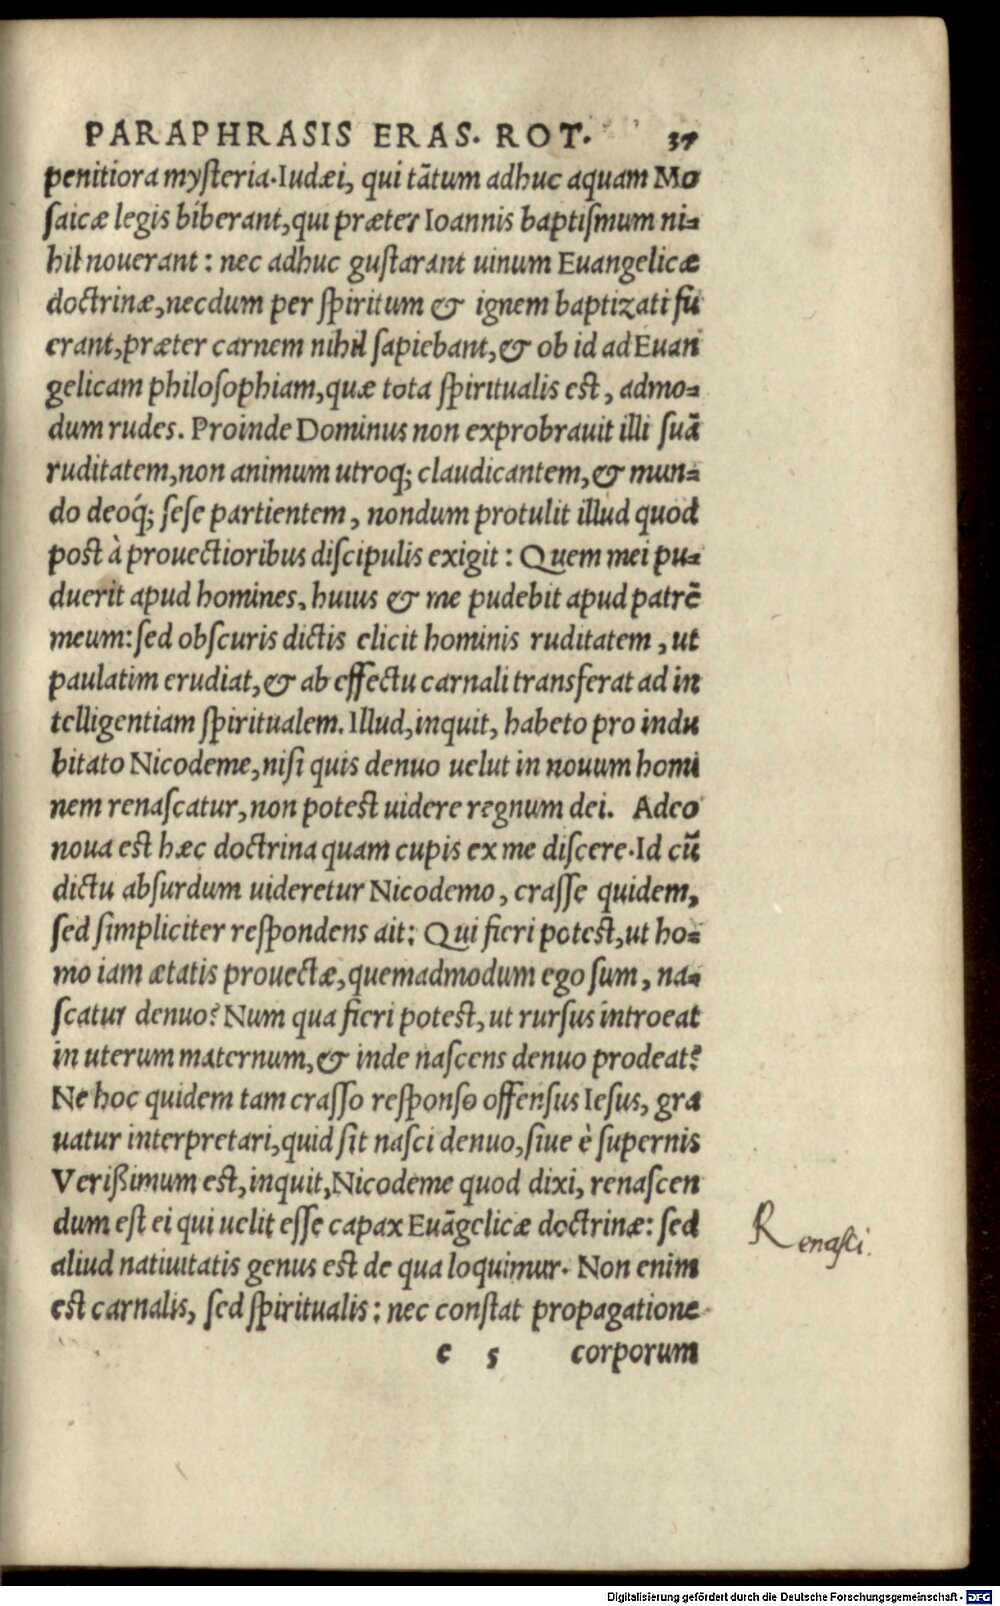 PARAPHRASIS ERAS. ROT. 37
penitiora mysteria. Iudæi, qui tātum adhuc aquam Mo
saicæ legis biberant, qui præter Ioannis baptismum ni-
hil nouerant: nec adhuc gustarant uinum Euangelicæ
doctrinæ, necdum per spiritum & ignem baptizati fu
erant, præter carnem nihil sapiebant, & ob id ad Euan
gelicam philosophiam, quæ tota spiritualis est, admo-
dum rudes. Proinde Dominus non exprobrauit illi suā
ruditatem, non animum utroq; claudicantem, & mun-
do deoq́; sese partientem, nondum protulit illud quod
post à prouectioribus discipulis exigit: Quem mei pu-
duerit apud homines, huius & me pudebit apud patrē
meum: sed obscuris dictis elicit hominis ruditatem, ut
paulatim erudiat, & ab effectu carnali transferat ad in
telligentiam spiritualem. Illud, inquit, habeto pro indu
bitato Nicodeme, nisi quis denuo uelut in nouum homi
nem renascatur, non potest uidere regnum dei. Adeo
noua est hæc doctrina quam cupis ex me discere. Id cū
dictu absurdum uideretur Nicodemo, crasse quidem,
sed simpliciter respondens ait: Qui fieri potest, ut ho-
mo iam ætatis prouectæ, quemadmodum ego sum, na-
scatur denuo? Num qua fieri potest, ut rursus introeat
in uterum maternum, & inde nascens denuo prodeat?
Ne hoc quidem tam crasso responso offensus Iesus, gra
uatur interpretari, quid sit nasci denuo, siue è supernis
Verißimum est, inquit, Nicodeme quod dixi, renascen
dum est ei qui uelit esse capax Euāgelicæ doctrinæ: sed
aliud natiuitatis genus est de qua loquimur. Non enim
est carnalis, sed spiritualis: nec constat propagatione
e 5 corporum
Renasci.
Digitalisierung gefördert durch die Deutsche Forschungsgemeinschaft - DFG